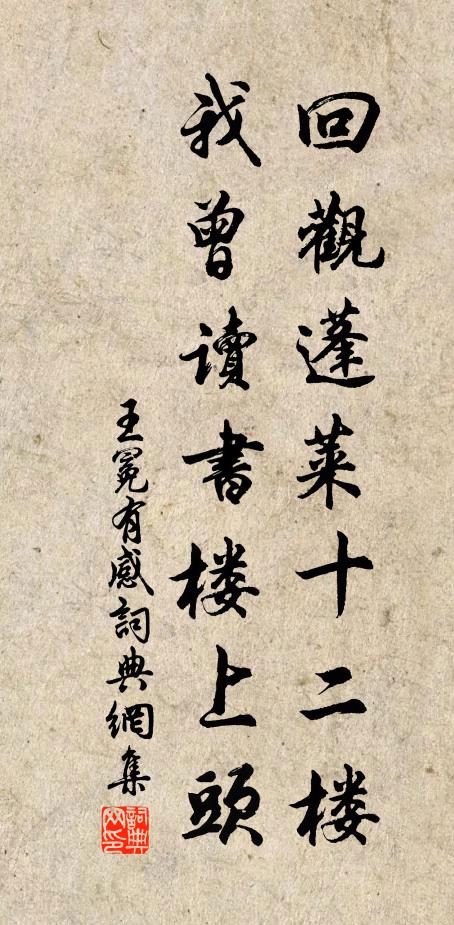 回觀蓬萊十二楼
我曾读書楼上頭
王冕有感詞典網集
詞典网印